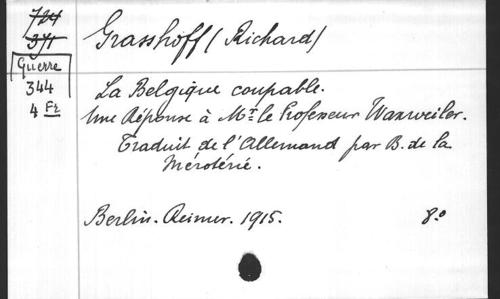 724
371
Guerre
344
4 Fr
Grasshoff (Richard)
La Belgique coupable.
Une Réponse à Mr. le Professeur Waxweiler.
Traduit de l'Allemand par B. de la
Méroterié.
Berlin. Reimer. 1915. 8.o